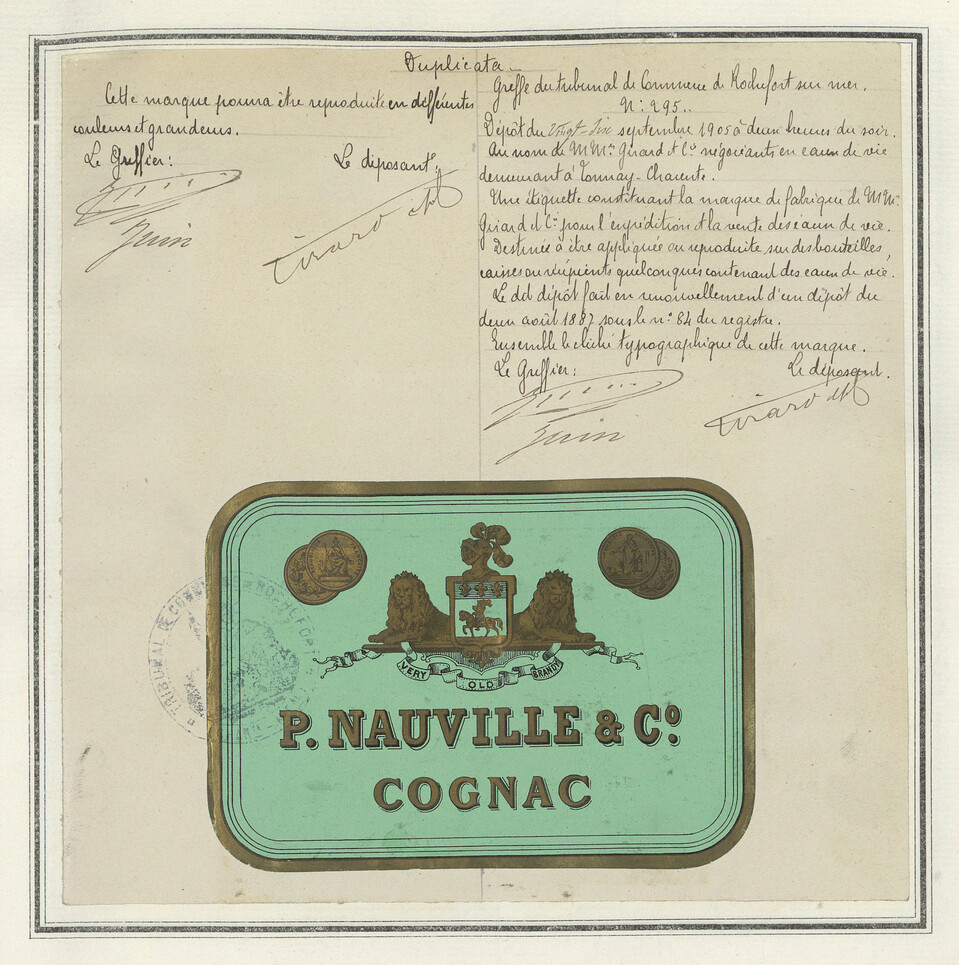 Duplicata
Cette marque pourra être reproduite en différentes
couleurs et grandeurs.
Le Greffier:
Le déposant:
Girard et Cie
Greffe du tribunal de Commerce de Rochefort sur mer.
N: 295..
Dépôt du Vingt-Six septembre 1905 à deux heures du soir.
Au nom de MMrs Girard et Cie négociants en eaux de vie
demeurant à Tonnay-Charente.
Une étiquette constituant la marque de fabrique de MMrs
Girard et Cie pour l'expédition et la vente des eaux de vie.
Destinée à être appliquée ou reproduite sur des bouteilles,
caisses ou récipients quelconques contenant des eaux de vie.
Le dit dépôt fait en renouvellement d'un dépôt du
deux août 1887 sous le no 84 du registre.
Ensemble le cliché typographique de cette marque.
Le Greffier:
Le déposant.
Girard et Cie
TRIBUNAL DE COMMERCE ROCHEFORT
VERY OLD BRANDY
P. NAUVILLE & Co.
COGNAC